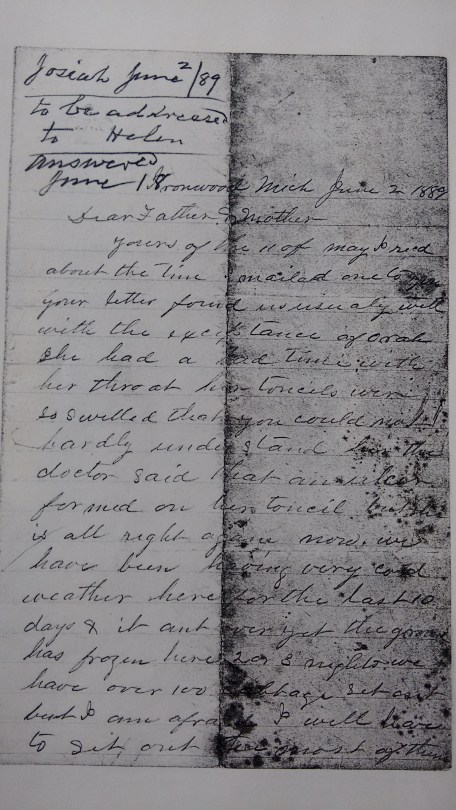 Josiah June 2/89
to be addressed
to Helen
answered
June 1
Ironwood Mich June 2 1889
Dear Father & Mother
yours of the 11 of may I recd
about the time I mailed one to you
your letter found us usualy well
with the exceptance of Orah
she had a bad time with
her throat her toncils were
so swelled that you could not
hardly understand her the
doctor said that an ulcer
formed on her toncil but she
is all right again now. we
have been having very cold
weather here for the last 10
days & it ant over yet the ground
has frozen here 2 or 3 nights we
have over 100 cabbage set out
but I am afraid I will have
to set out the most of them